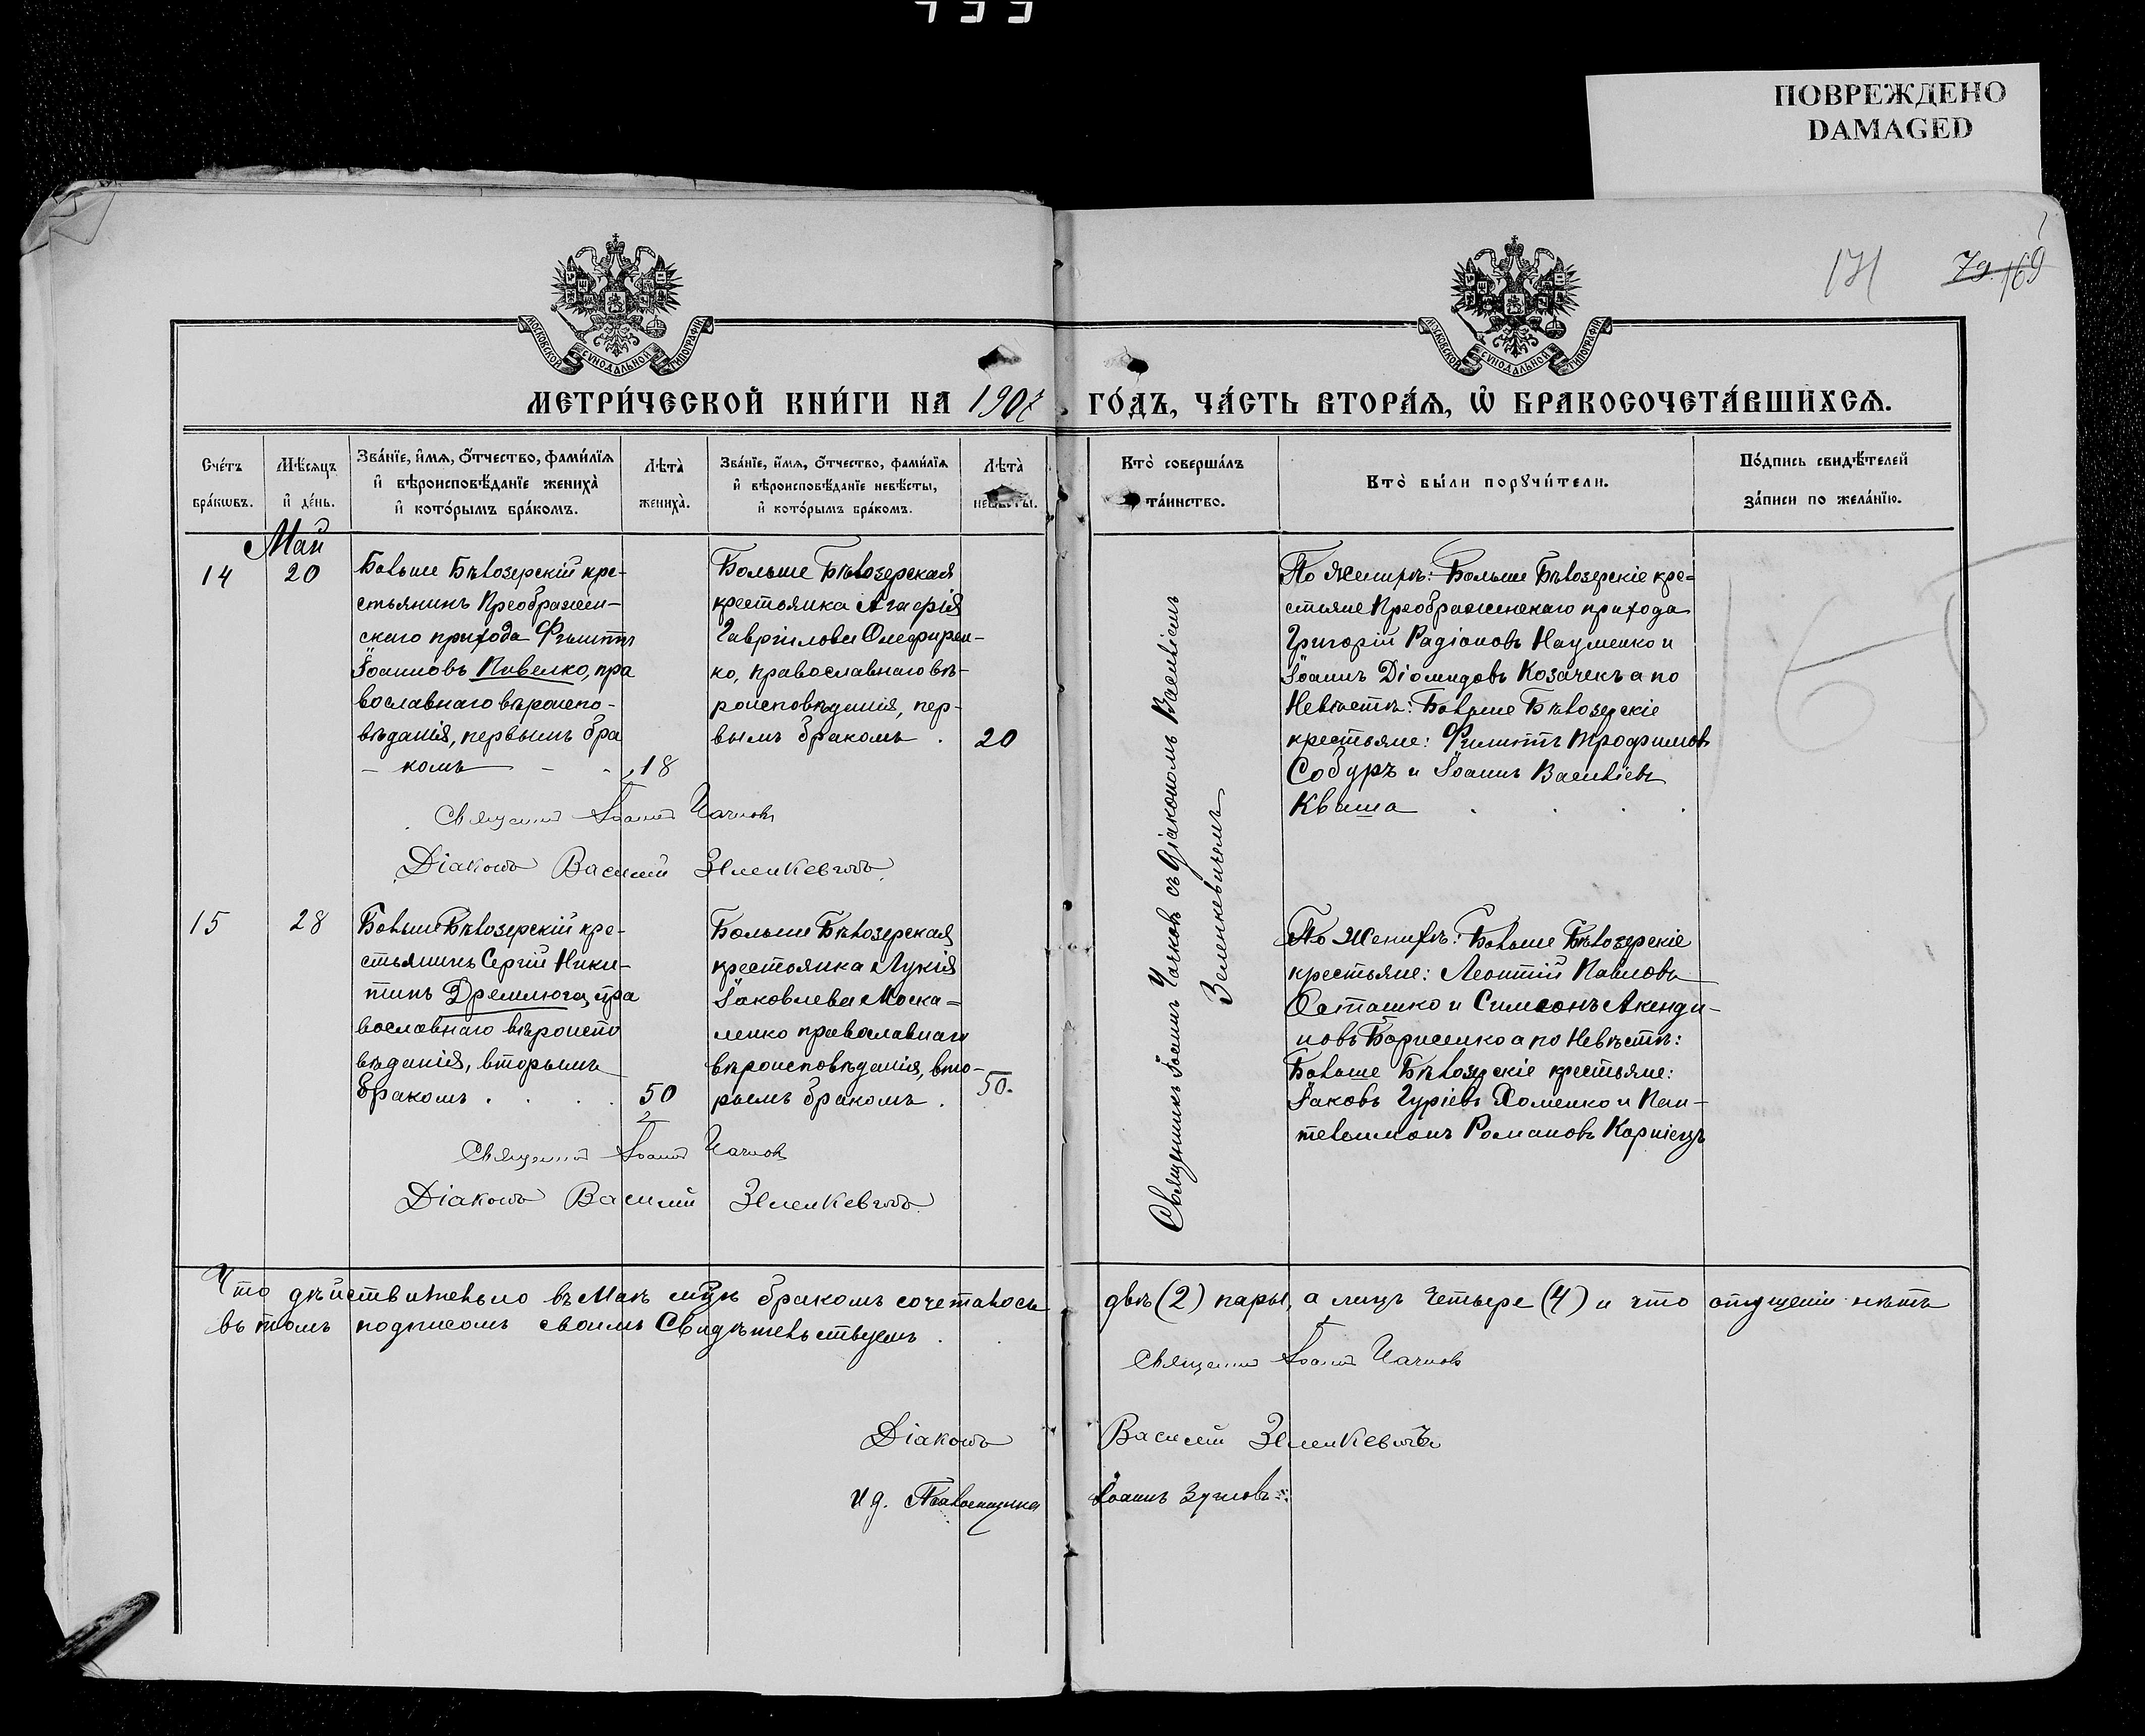 ПОВРЕЖДЕНО
DAMAGED
171
79. 169
МОСКОВСКОЙ СѴНОДАЛЬНОЙ ТИПОГРАФІИ
МОСКОВСКОЙ СѴНОДАЛЬНОЙ ТИПОГРАФІИ
МЕТРИ́ЧЕСКОЙ КНИ́ГИ НА 1907 ГО́ДЪ, ЧА́СТЬ ВТОРА́Ѧ, Ѡ҆ БРАКОСОЧЕТА́ВШИХСѦ.
Сче́тъ
бра́кѡвъ.
Мѣ́сѧцъ
и҆ де́нь.
Зва́нїе, и҆́мѧ, ѻ҆́тчество, фами́лїѧ
и҆ вѣроисповѣ́данїе жениха̀
и҆ кото́рымъ бра́комъ.
Лѣта̀
жениха̀.
Зва́нїе, и҆́мѧ, ѻ҆́тчество, фами́лїѧ
и҆ вѣроисповѣ́данїе невѣ́сты,
и҆ кото́рымъ бра́комъ.
Лѣта̀
невѣ́сты.
Кто̀ соверша́лъ
та́инство.
Кто̀ бы́ли порꙋчи́тели.
По́дпись свидѣ́телей
за́писи по жела́нїю.
Май
14
20
Больше Бѣлозерскій кре-
стьянинъ Преображен-
скаго прихода Филиппъ
Іоанновъ Павелко, пра
вославнаго вѣроиспо-
вѣданія, первымъ бра
- комъ - -
18
Больше Бѣлозерская
крестьянка Агафія
Гавріилова Олефирен-
ко, православнаго вѣ-
роисповѣданія, пер-
вымъ бракомъ .
20
Священникъ Іоаннъ Чачковъ съ Діакономъ Василіемъ
Зеленкевичемъ
По Женихѣ: Больше Бѣлозерскіе кре=
стьяне Преображенскаго прихода
Григорій Радіоновъ Науменко и
Іоаннъ Діомидовъ Козачекъ а по
Невѣстѣ: Больше Бѣлозерскіе
крестьяне: Филиппъ Трофимовъ
Собуръ и Іоаннъ Василіевъ
Кваша . . . .
Священник Іоаннъ
Діаконъ Василій Зеленкевичъ
15
28
Больше Бѣлозерскій кре-
стьянинъ Сергій Ники-
тинъ Дремлюга, пра
вославнаго вѣроиспо
вѣданія, вторымъ
бракомъ . . . .
50
Больше Бѣлозерская
крестьянка Лукія
Іаковлева Моска=
ленко православнаго
вѣроисповѣданія, вто-
рымъ бракомъ .
50.
По Женихѣ: Больше Бѣлозерскіе
крестьяне: Леонтій Павловъ
Осташко и Симеонъ Акенди-
новъ Борисенко а по Невѣстѣ:
Больше Бѣлозерскіе крестьяне:
Іаковъ Гуріевъ Хоменко и Пан-
телеимонъ Романовъ Корніецъ
Священник Іоаннъ
Діаконъ Василій Зеленкевичъ
Что дѣйствительно въ Маѣ мѣсяцѣ бракомъ сочеталось двѣ (2) пары, а лицъ четыре (4) и что опущеніи нѣтъ
въ томъ подписомъ своимъ Свидѣтельствуемъ .
Священник Іоаннъ
Діаконъ Василій Зеленкевичъ
И д. Псаломщика Іоаннъ